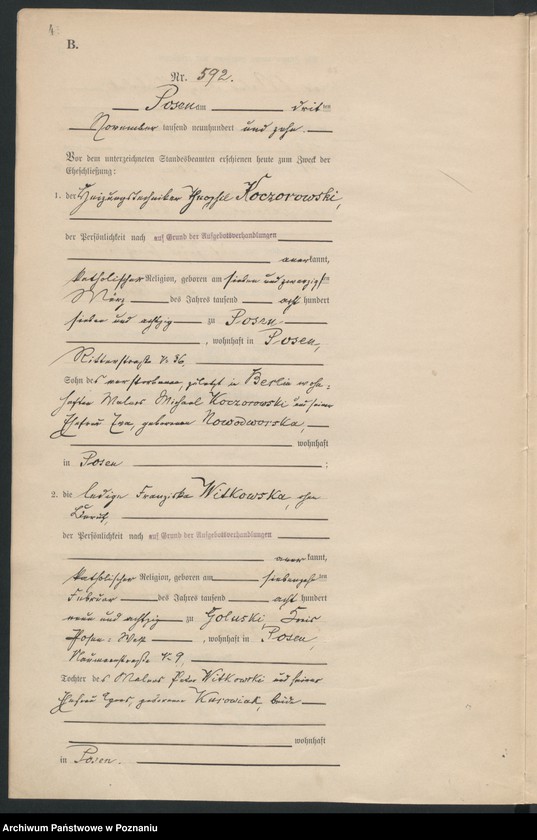 B.
Nr. 592.
Posen am drit ten
November tausend neunhundert und zehn.
Vor dem unterzeichneten Standesbeamten erschienen heute zum Zweck der
Eheschließung:
1. der Heizungstechniker Koczorowski,
der Persönlichkeit nach auf Grund der Aufgebotsverhandlungen
aner kannt,
katholischer Religion, geboren am sieben und zwanzigsten
März des Jahres tausend acht hundert
sieben und achtzig zu Posen
, wohnhaft in Posen,
Ritterstraße 36,
Sohn des verstorbenen, zuletzt in Berlin wohn-
haften Malers Michael Koczorowski und seiner
Ehefrau Eva, geborenen Nowodworska,
wohnhaft
in Posen ;
2. die ledige Franziska Witkowska, ohne
Beruf,
der Persönlichkeit nach auf Grund der Aufgebotsverhandlungen
aner kannt,
katholischer Religion, geboren am siebenzehn ten
Februar des Jahres tausend acht hundert
neun und achtzig zu Goluski, Kreis
Posen-West , wohnhaft in Posen,
Naumannstraße 9,
Tochter des Malers Peter Witkowski und seiner
Ehefrau Agnes, geborene Kurowiak, beide
wohnhaft
in Posen.
Archiwum Państwowe w Poznaniu